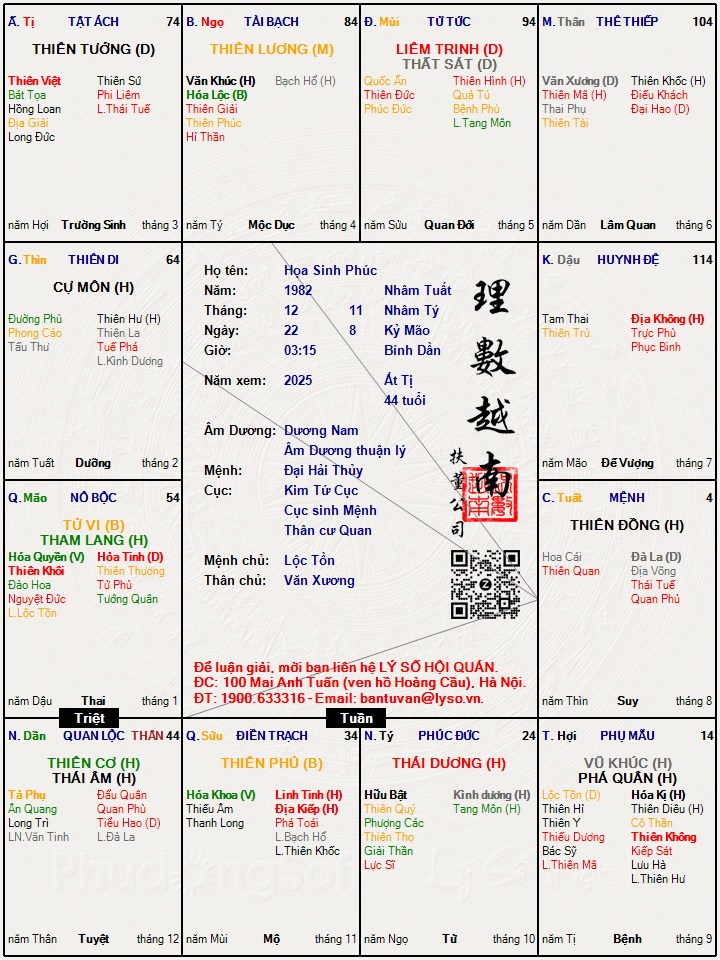 Ã. Tị TẬT ÁCH 74
THIÊN TƯỚNG (D)
Thiên Việt Thiên Sứ
Bát Tọa Phi Liêm
Hồng Loan L.Thái Tuế
Địa Giải
Long Đức
năm Hợi Trường Sinh tháng 3
B. Ngọ TÀI BẠCH 84
THIÊN LƯƠNG (M)
Văn Khúc (H) Bạch Hổ (H)
Hóa Lộc (B)
Thiên Giải
Thiên Phúc
Hỉ Thần
năm Tý Mộc Dục tháng 4
Đ. Mùi TỬ TỨC 94
LIÊM TRINH (D)
THẤT SÁT (D)
Quốc Ấn Thiên Hình (H)
Thiên Đức Quả Tú
Phúc Đức Bệnh Phù
L.Tang Môn
năm Sửu Quan Đới tháng 5
M. Thân THÊ THIẾP 104
Văn Xương (D) Thiên Khốc (H)
Thiên Mã (H) Điếu Khách
Thai Phụ Đại Hao (D)
Thiên Tài
năm Dần Lâm Quan tháng 6
G. Thìn THIÊN DI 64
CỰ MÔN (H)
Đường Phù Thiên Hư (H)
Phong Cáo Thiên La
Tấu Thư Tuế Phá
L.Kình Dương
năm Tuất Dưỡng tháng 2
Họ tên: Họa Sinh Phúc
Năm: 1982 Nhâm Tuất
Tháng: 12 11 Nhâm Tý
Ngày: 22 8 Kỷ Mão
Giờ: 03:15 Bính Dần
Năm xem: 2025 Ất Tị
44 tuổi
Âm Dương: Dương Nam
Âm Dương thuận lý
Mệnh: Đại Hải Thủy
Cục: Kim Tứ Cục
Cục sinh Mệnh
Thân cư Quan
Mệnh chủ: Lộc Tồn
Thân chủ: Văn Xương
理數越南
扶董公司
Để luận giải, mời bạn liên hệ LÝ SỐ HỘI QUÁN.
ĐC: 100 Mai Anh Tuấn (ven hồ Hoàng Cầu), Hà Nội.
ĐT: 1900.633316 - Email: bantuvan@lyso.vn.
K. Dậu HUYNH ĐỆ 114
Tam Thai Địa Không (H)
Thiên Trù Trực Phù
Phục Binh
năm Mão Đế Vượng tháng 7
Q. Mão NÔ BỘC 54
TỬ VI (B)
THAM LANG (H)
Hóa Quyền (V) Hỏa Tinh (D)
Thiên Khôi Thiên Thương
Đào Hoa Tử Phù
Nguyệt Đức Tướng Quân
L.Lộc Tồn
năm Dậu Thai tháng 1
C. Tuất MỆNH 4
THIÊN ĐỒNG (H)
Hoa Cái Đà La (D)
Thiên Quan Địa Võng
Thái Tuế
Quan Phủ
năm Thìn Suy tháng 8
Triệt
Tuần
N. Dần QUAN LỘC THÂN 44
THIÊN CƠ (H)
THÁI ÂM (H)
Tả Phụ Đẩu Quân
Ân Quang Quan Phù
Long Trì Tiểu Hao (D)
LN.Văn Tinh L.Đà La
năm Thân Tuyệt tháng 12
Q. Sửu ĐIỀN TRẠCH 34
THIÊN PHỦ (B)
Hóa Khoa (V) Linh Tinh (H)
Thiếu Âm Địa Kiếp (H)
Thanh Long Phá Toái
L.Bạch Hổ
L.Thiên Khốc
năm Mùi Mộ tháng 11
N. Tý PHÚC ĐỨC 24
THÁI DƯƠNG (H)
Hữu Bật Kình dương (H)
Thiên Quý Tang Môn (H)
Phượng Các
Thiên Thọ
Giải Thần
Lực Sĩ
năm Ngọ Tử tháng 10
T. Hợi PHỤ MẪU 14
VŨ KHÚC (H)
PHÁ QUÂN (H)
Lộc Tồn (D) Hóa Kị (H)
Thiên Hỉ Thiên Diêu (H)
Thiên Y Cô Thần
Thiếu Dương Thiên Không
Bác Sỹ Kiếp Sát
L.Thiên Mã Lưu Hà
L.Thiên Hư
năm Tị Bệnh tháng 9